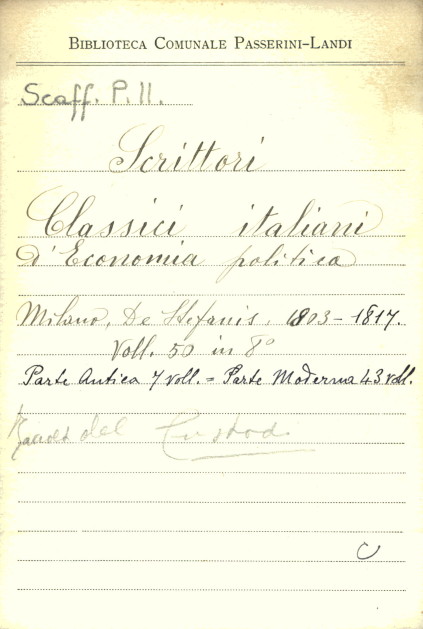 BIBLIOTECA COMUNALE PASSERINI-LANDI
Scaff. P. 11.
Scrittori
Classici italiani
d'Economia politica
Milano, De Stefanis, 1803-1817.
Voll. 50 in 8º
Parte Antica 7 voll. = Parte Moderna 43 voll.
del Custodi
C